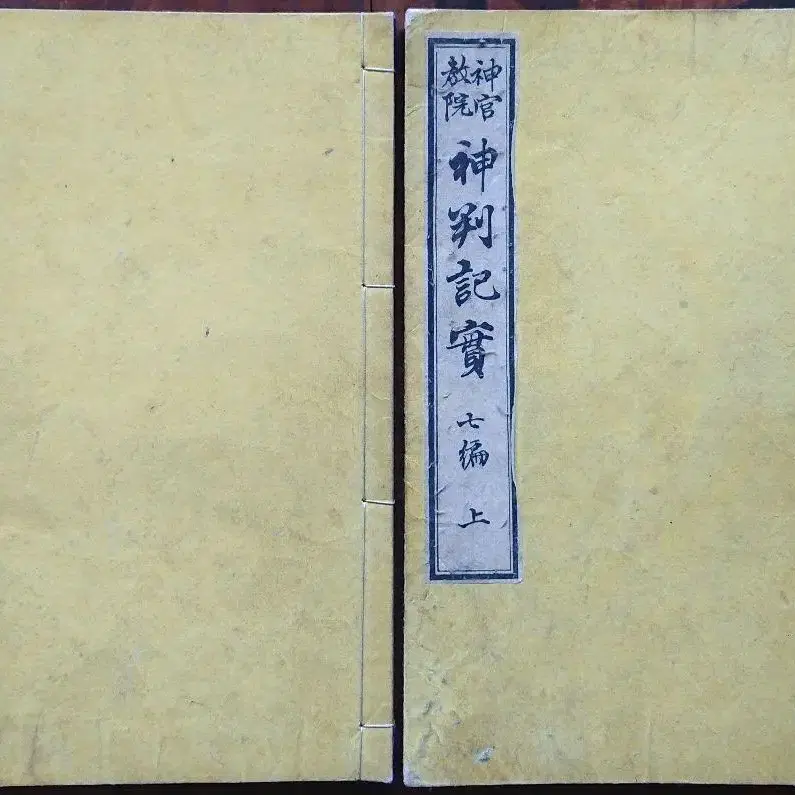 神官
教院
神判記實
七編
上